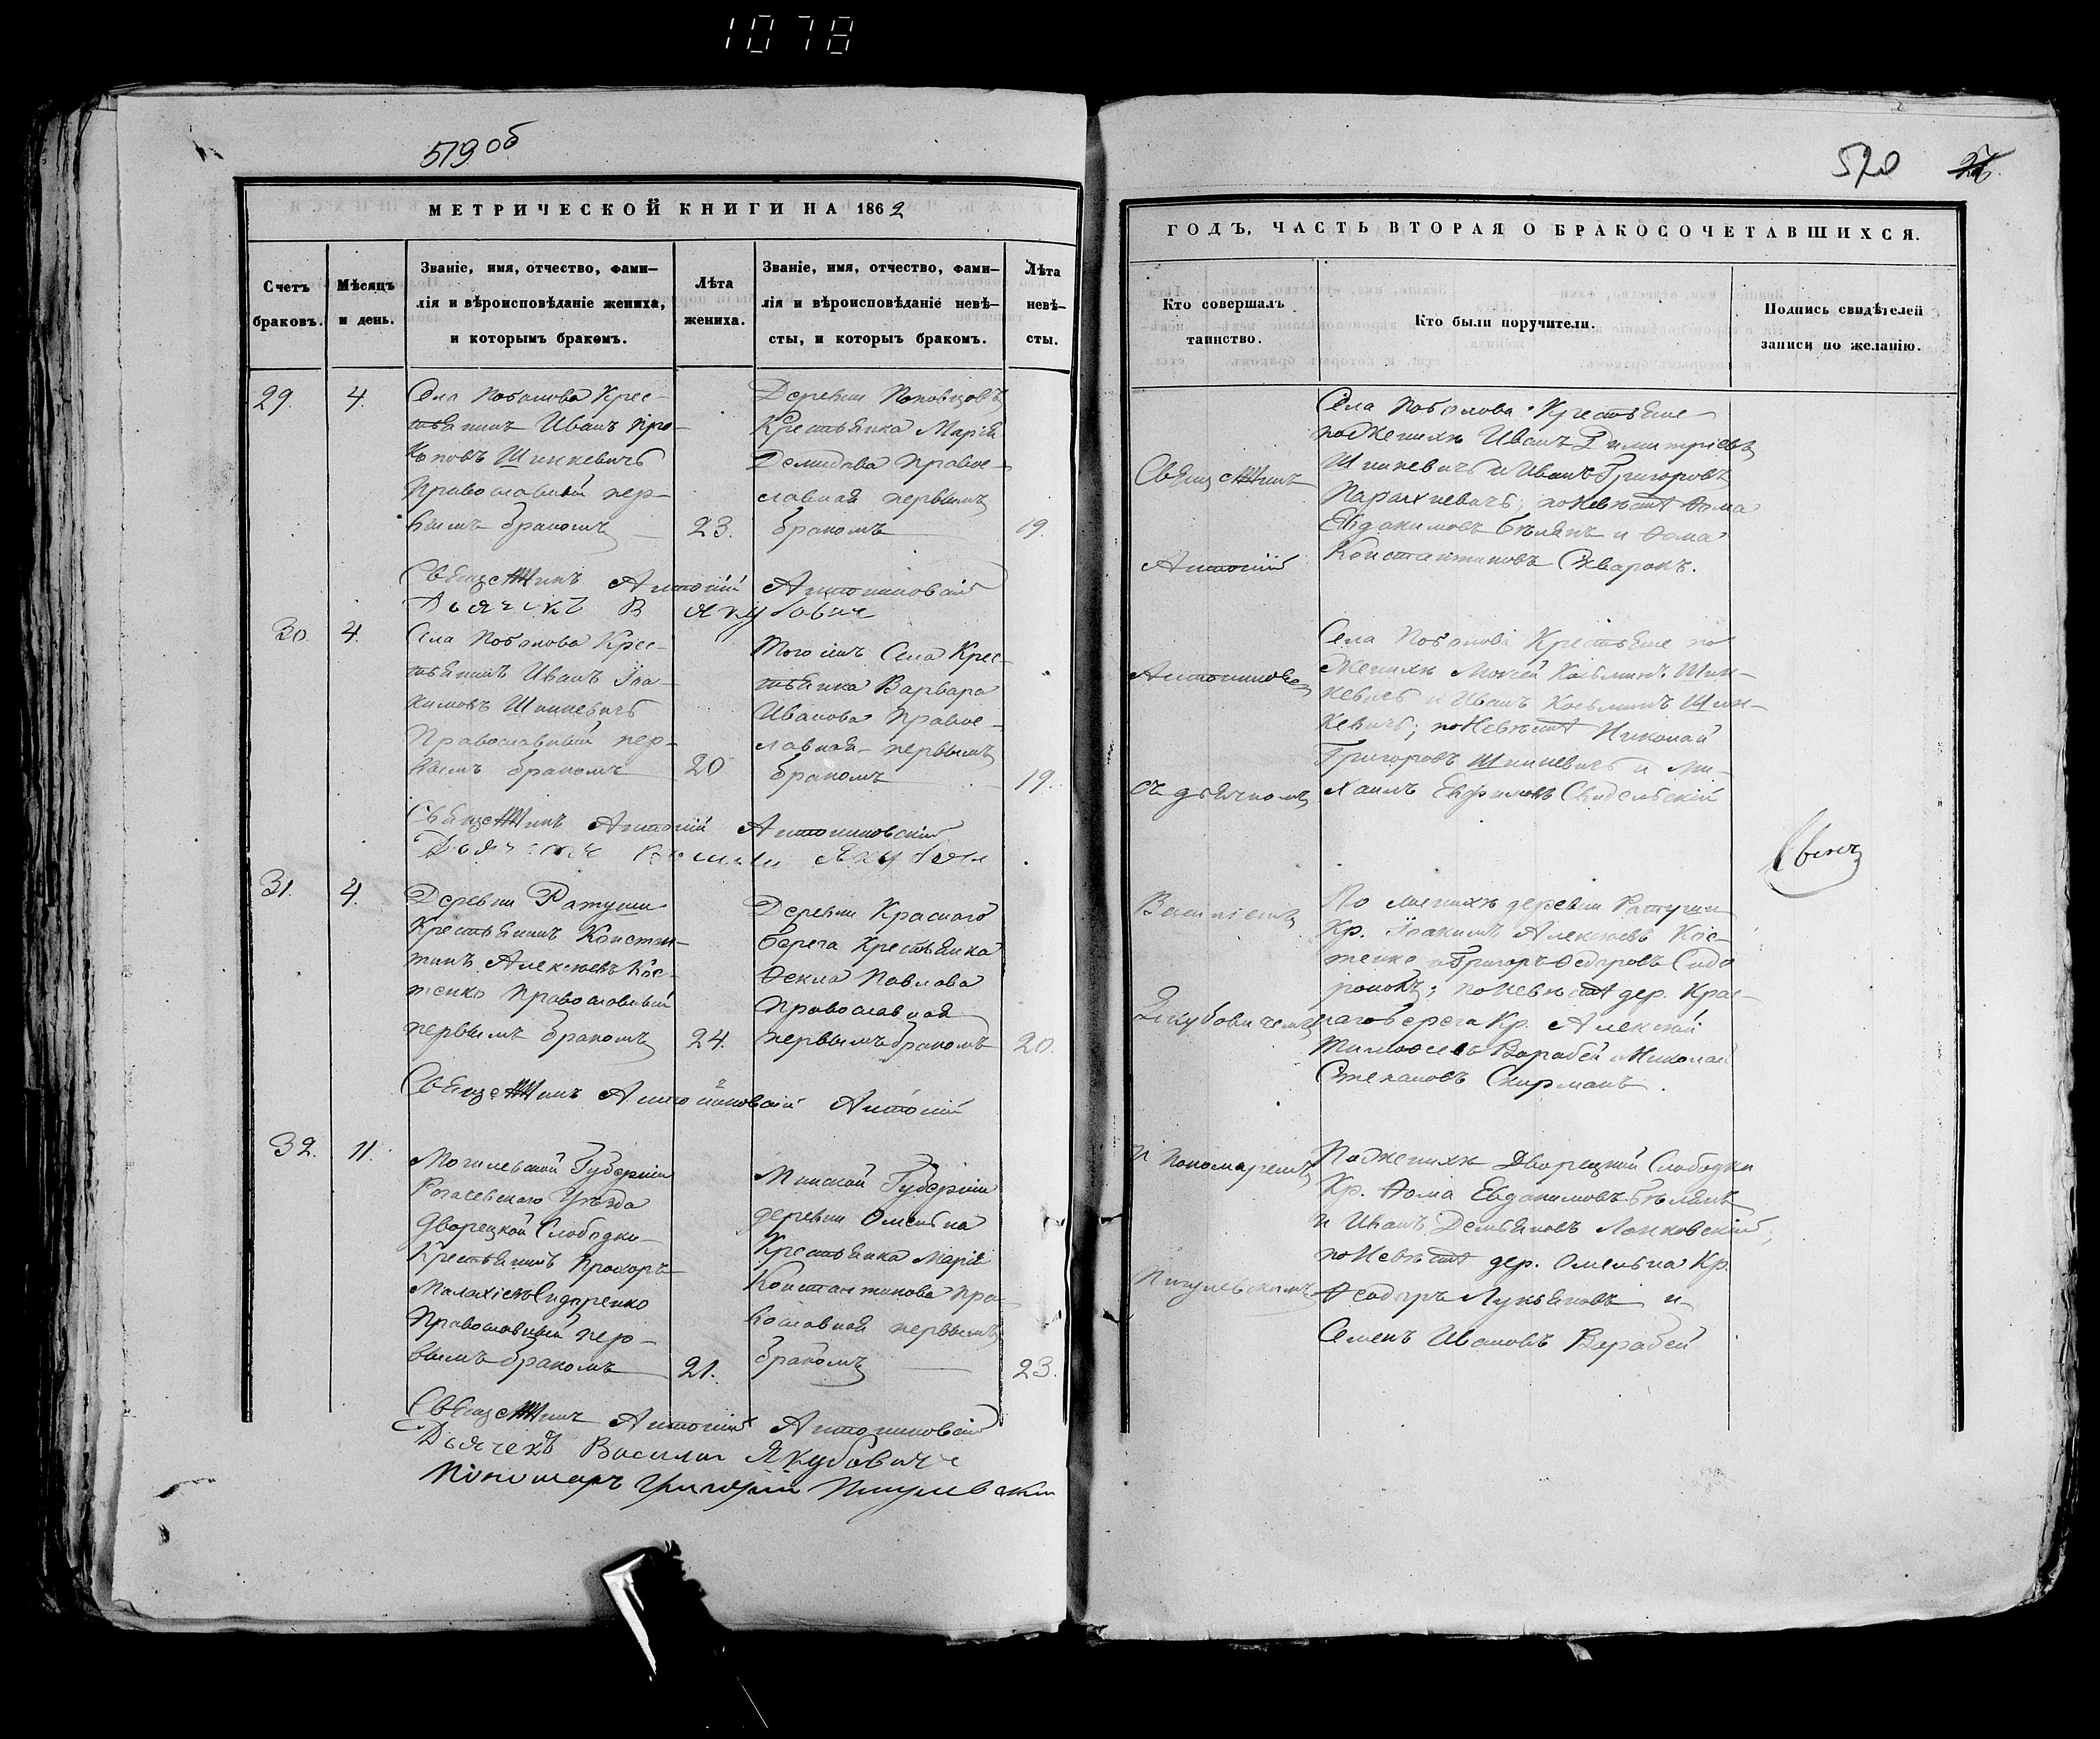 1078
519 об
МЕТРИЧЕСКОЙ КНИГИ НА 1862
Счетъ браковъ.
Мѣсяцъ и день.
Званіе, имя, отчество, фами-
лія и вѣроисповѣданіе жениха,
и которымъ бракомъ.
Лѣта жениха.
Званіе, имя, отчество, фами-
лія и вѣроисповѣданіе невѣ-
сты, и которыъ бракомъ.
Лѣта невѣ-
сты.
29. 4.
Села Поболова Крес-
тьянинъ Иванъ Про-
коповъ Шинкевичъ
Православный пер-
вымъ бракомъ 23.
Деревни Поповцовъ
Крестьянка Марія
Демидова Правос-
лавная первымъ
бракомъ 19.
Священникъ Антоній Антониновскій
Дьячекъ В Якубович
30. 4.
Села Поболова Крес-
тьянинъ Иванъ Іоа-
кимовъ Шинкевичъ
Православный пер-
вымъ бракомъ 20
Того жъ Села Крес-
тьянка Варвара
Иванова Правос-
лавная первымъ
бракомъ 19.
Священникъ Антоній Антониновскій
31. 4.
Деревни Ратуши
Крестьянинъ Констан-
тинъ Алексѣевъ Кос-
тенко Православный
первымъ бракомъ 24.
Деревни Краснаго
берега Крестьянка
Ѳекла Павлова
Православная
первымъ бракомъ 20.
Священникъ Антониновскій Антоній
32. 11.
Могилевской Губерніи
Рогачевскаго Уѣзда
Дворецкой Слободки
Крестьянинъ Прохоръ
Малахіевъ Сидоренко
Православный пер-
вымъ бракомъ 21.
Минской Губерніи
деревни Омельна
Крестьянка Марія
Константинова Пра-
вославная первымъ
бракомъ 23.
Священникъ Антоній Антониновскій
Дьячекъ Василій Якубовичъ
Пономарь Григорій Пигулевскій
520
ГОДЪ, ЧАСТЬ ВТОРАЯ О БРАКОСОЧЕТАВШИХСЯ.
Кто совершалъ
таинство.
Кто были поручители.
Подпись свидѣтелей
записи по желанію.
Священникъ
Антоній
Антониновскій
съ дьячкомъ
Василіемъ
Якубовичемъ
и пономаремъ
Пигулевскимъ
Села Поболова Крестьяне
по Женихѣ Иванъ Димитріевъ
Шинкевичъ и Иванъ Григоровъ
по Невѣстѣ Ѳома
Евдокимовъ Бѣлякъ и Ѳома
Константиновъ Скваронъ.
Села Поболова Крестьяне по
Женихѣ Моисей Козьминъ Шин-
кевичъ и Иванъ Козьминъ Шин-
кевичъ; по Невѣстѣ Николай
Григоровъ Шинкевичъ и Ми-
хаилъ
По женихѣ деревни Ратуши
Кр. Іоакимъ Алексѣевъ Кос-
тенко и Григоръ Ѳедоровъ Сидо
ронокъ; по Невѣстѣ дер. Крас-
наго берега Кр. Алексѣй
Тимоѳеевъ Варабей Николай
Степановъ
По Женихѣ Дворецкой Слободки
Кр. Ѳома Евдокимовъ Бѣлякъ
и Иванъ Демьяновъ
по Невѣстѣ дер. Омельна Кр.
Ѳеодоръ Лукьяновъ и
Семенъ Ивановъ Варабей